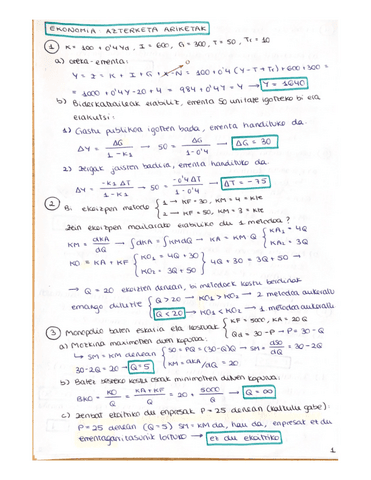 EKONOMIA AZTERKETA ARIKETAK
1 K = 100 + 0'4Yd, I = 600, G = 300, T = 50, Tr = 10
a) oreka-errenta:
Y = I = K + I + G + X-N = 100 + 0'4 (Y - T + Tr) + 600 + 300 =
0
= 1000 + 0'4Y - 20 + 4 = 984 + 0'4Y = Y → Y = 1640
b) Biderkatzaileak erabiliz, errenta 50 unitate igotzeko bi era
erakutsi:
1) Gastu publikoa igotzen bada, errenta handituko da.
ΔY = ΔG / 1-k1 → 50 = ΔG / 1-0'4 → ΔG = 30
2) Zergak jaisten badira, errenta handituko da.
ΔY = -k1 ΔT / 1-k1 → 50 = -0'4ΔT / 1-0'4 → ΔT = -75
2 Bi ekoizpen metodo { 1 → KF = 30, KM = 4 = kte
2 → KF = 50, KM = 3 = kte
Zein ekoizpen mailatarako erabiliko du 1 metodoa?
KM = dKA / dQ → ∫dKA = ∫KMdQ → KA = KM·Q { KA1 = 4Q
KA2 = 3Q
KO = KA + KF { KO1 = 4Q + 30
KO2 = 3Q + 50 } 4Q + 30 = 3Q + 50 →
→ Q = 20 ekoizten denean, bi metodoek kostu berdinak
emango dituzte { Q > 20 → KO1 > KO2 → 2 metodoa aukeratu
Q < 20 → KO1 < KO2 → 1 metodoa aukeratu
3 Monopolio baten eskaria eta kostuak { KF = 5000, KA = 20Q
Qd = 30 - P → P = 30 - Q
a) Mozkina maximotzen duen kopurua:
↳ SM = KM denean { SO = PQ = (30-Q)Q → SM = dSO / dQ = 30-2Q
30-2Q = 20 → Q = 5 KM = dKA / dQ = 20
b) Batez besteko kostu osoak minimotzen dituen kopurua:
BKO = KO / Q = KA + KF / Q = 20 + 5000 / Q → Q = ∞
c) Zenbat ekoitziko du enpresak P = 25 denean (kalkulu gabe):
P = 25 denean (Q = 5) SM = KM da, hau da, enpresak ez du
errentagarritasunik lortuko → ez du ekoitziko
1